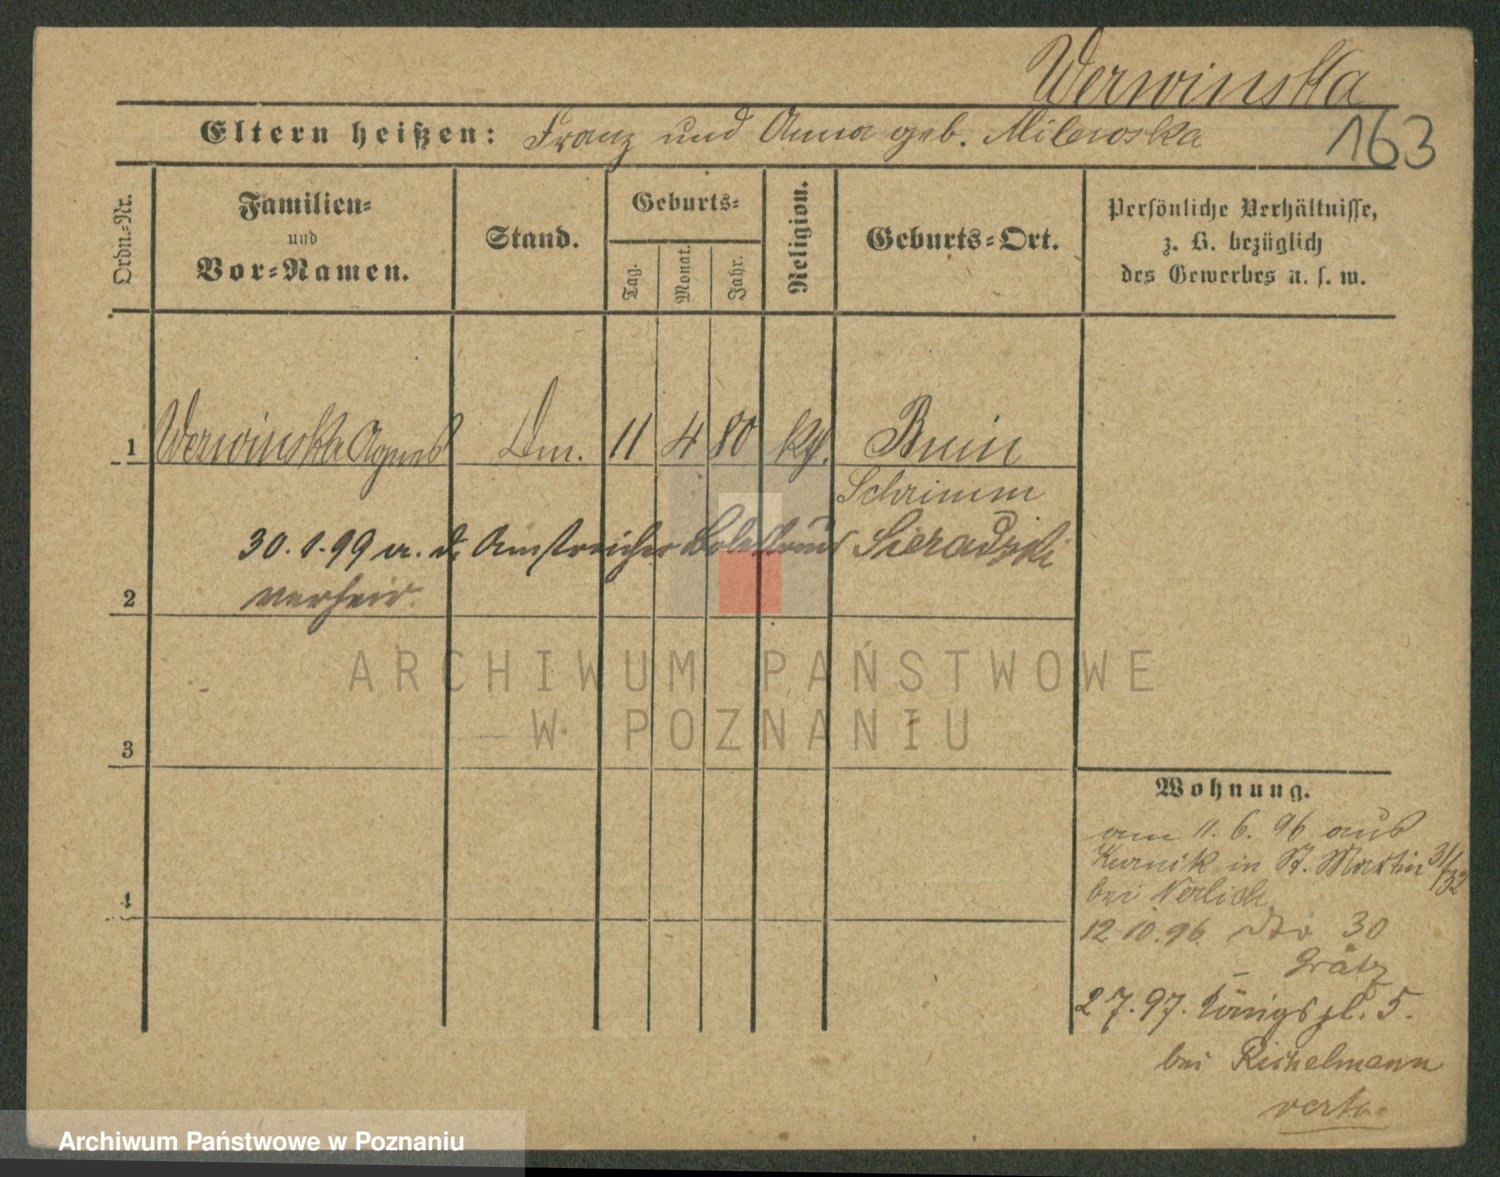 Werwinska
Eltern heißen: Franz und Anna geb. Milewska
163
Ordn.-Nr.
Familien-
und
Vor-Namen.
Stand.
Geburts-
Tag.
Monat.
Jahr.
Religion.
Geburts-Ort.
Persönliche Verhältnisse,
z. B. bezüglich
des Gewerbes u. s. w.
1 Werwinska Agnes Dm. 11 4 80 kth. Bnin
Schrimm
30. 1. 99 a. d. Anstreicher Boleslaus Sieradzki
2 verheir.
3
4
ARCHIWUM PAŃSTWOWE
W POZNANIU
Wohnung.
am 11. 6. 96 aus
Kurnik in St. Martin 31/32
bei Nerlich
12. 10. 96 dto 30
Grätz
2. 7. 97. Königspl. 5.
bei Rischelmann
verte
Archiwum Państwowe w Poznaniu